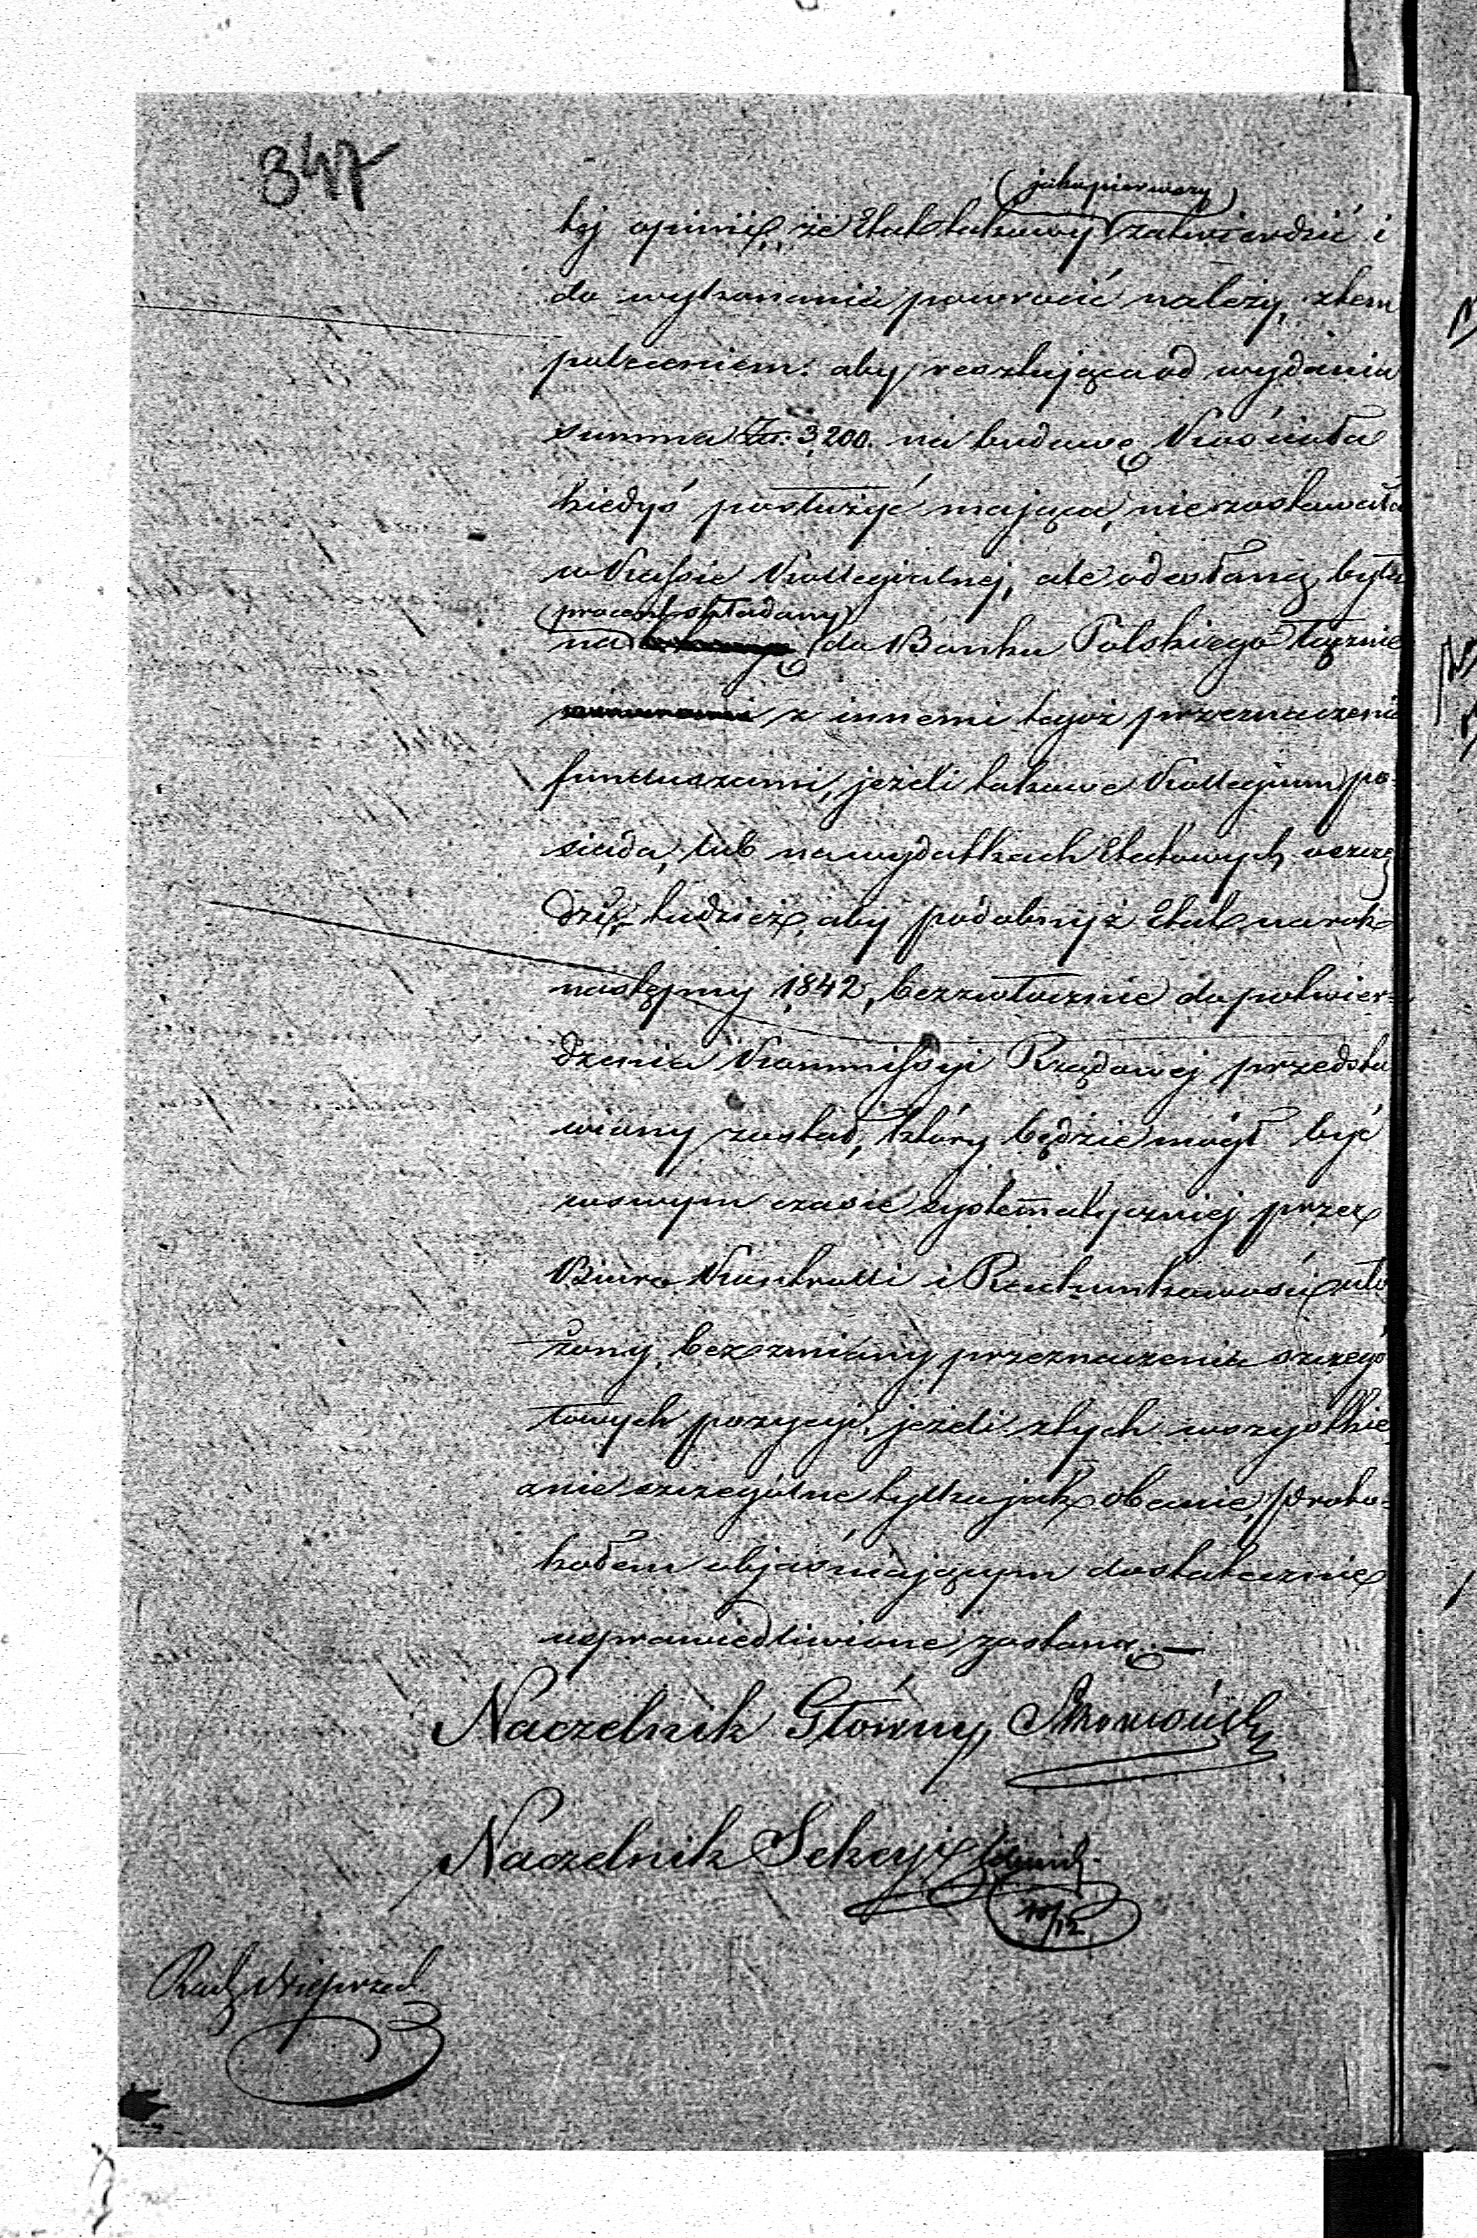 347
(jako pierwszy)
tej opinii, że Etat takowy zatwierdzić i
do wykonania powrócić należy, z tem
poleceniem: aby resztująca od wydania
summa Zł. 3,200. na budowę Kościoła
kiedyś posłużyć mająca, nie zostawała
w Kassie Kollegialnej, ale odesłaną była
(procent składany)
na do Banku Polskiego łącznie
z innemi tegoż przeznaczenia
funduszami, jeżeli takowe Kollegium po-
siada, lub na wydatkach Etatowych oszczę
dzi, tudzież, aby podobnyż Etat na rok
następny 1842, bezzwłocznie do potwier-
dzenia Kommissyi Rządowej przedsta
wiony został, który będzie mógł być
w swym czasie systematyczniej przez
Biuro Kontrolli i Rachunkowości uło
żony, bez zmiany przeznaczenia szczegó
łowych pozycyi, jeżeli z tych wszystkie
a nie szczególne tylko jak obecnie, proto-
kołem objaśniającym dostatecznie
usprawiedliwione zostaną.—
Naczelnik Główny
Naczelnik Sekcyi
10/12